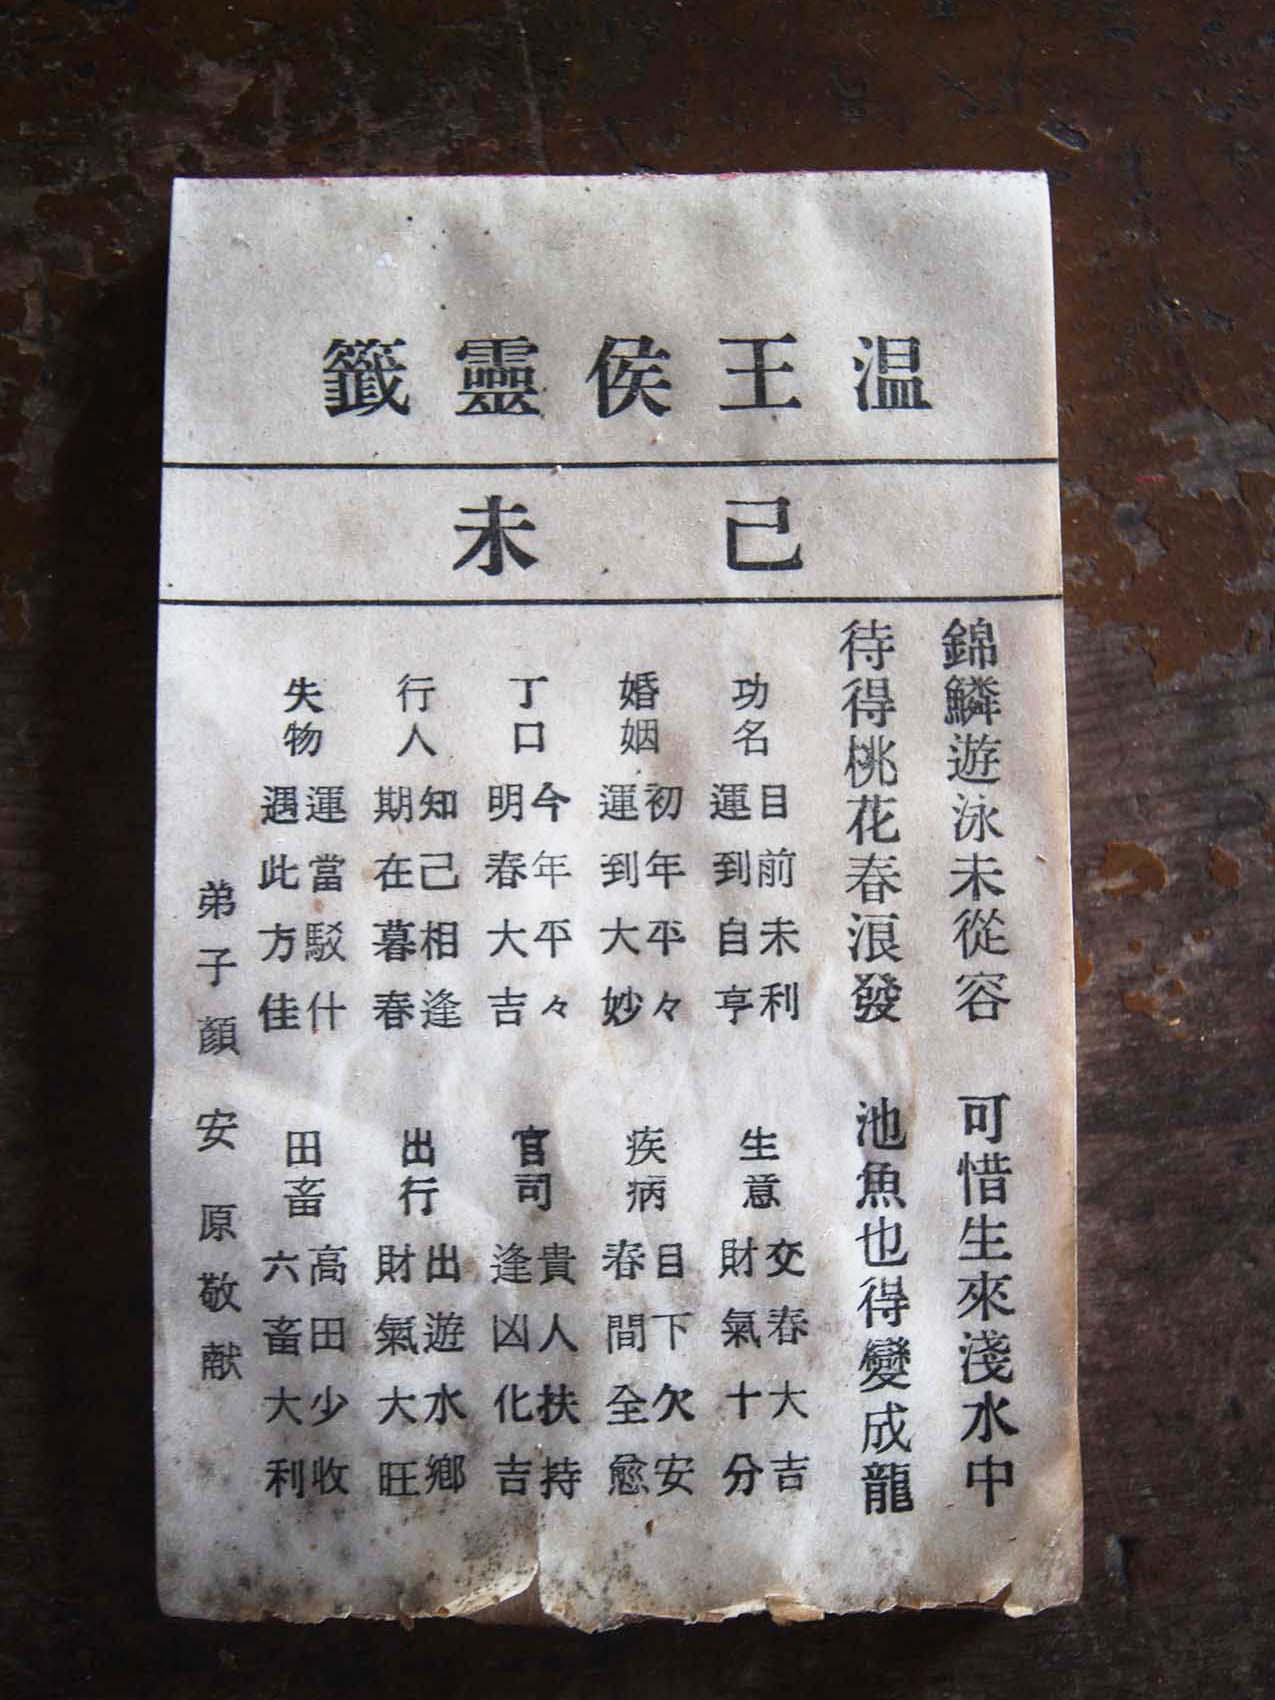 温王侯靈籤
己未
錦鱗遊泳未從容　可惜生來淺水中
待得桃花春浪發　池魚也得變成龍
功名　目前未利　運到自亨
生意　交春大吉　財氣十分
婚姻　初年平々　運到大妙
疾病　目下欠安　春間全愈
丁口　今年平々　明春大吉
官司　貴人扶持　逢凶化吉
行人　知己相逢　期在暮春
出行　出遊水鄉　財氣大旺
失物　運當駁什　遇此方佳
田畜　高田少收　六畜大利
弟子顏安原敬献